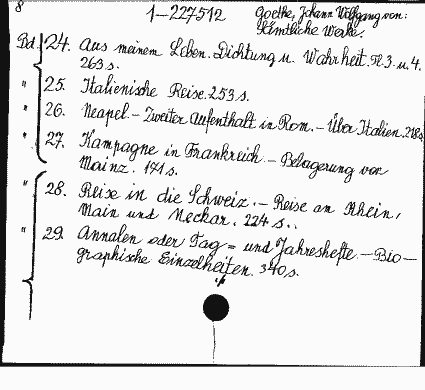 8
1-227512
Goethe, Johann Wolfgang von:
Sämtliche Werke.
Bd. 24. Aus meinem Leben. Dichtung u. Wahrheit. Tl. 3. u. 4.
263 s.
" 25. Italienische Reise. 253 s.
" 26. Neapel. - Zweiter Aufenthalt in Rom. - Über Italien. 218 s.
" 27. Kampagne in Frankreich. - Belagerung von
Mainz. 171 s.
" 28. Reise in die Schweiz. - Reise am Rhein,
Main und Neckar. 224 s.
" 29. Annalen oder Tag= und Jahreshefte. - Bio-
graphische Einzelheiten. 340 s.